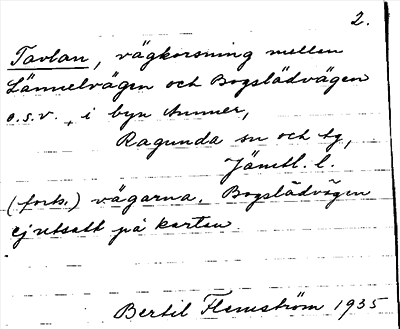 2.
Tavlan, vägkorsning mellan
Lännelvägen och Bogslädvägen
o.s.v., i byn Ammer,
Ragunda sn och tg,
Jämtl. l.
(forts.) vägarna. Bogslädvägen
ej utsatt på kartan.
Bertil Flemström 1935